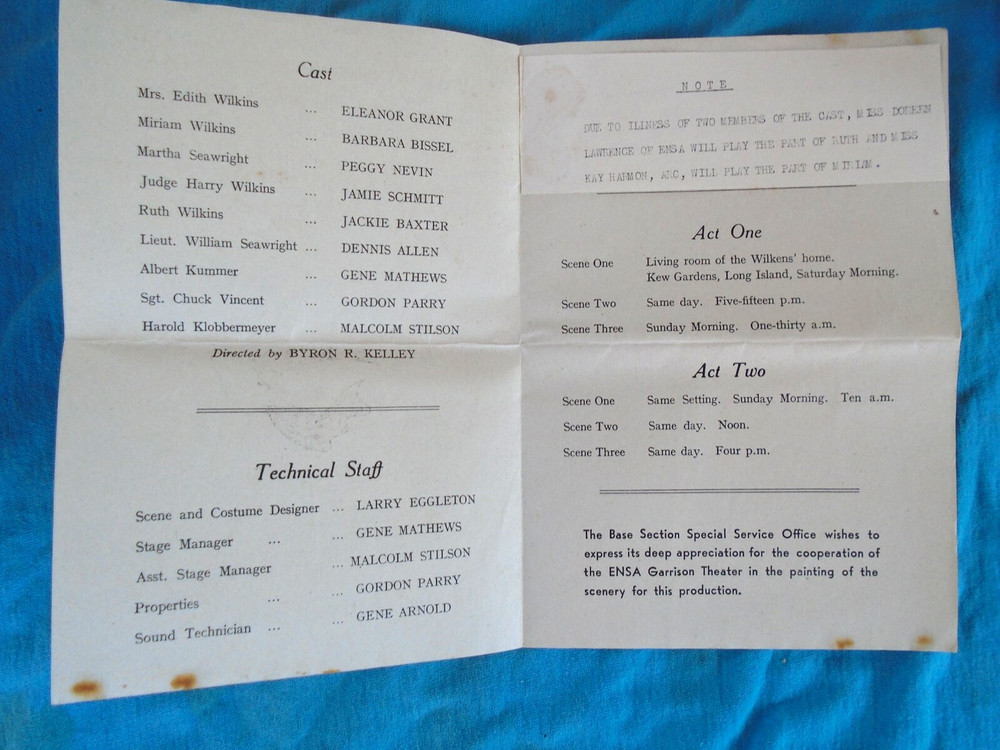 Cast
Mrs. Edith Wilkins ... ELEANOR GRANT
Miriam Wilkins ... BARBARA BISSEL
Martha Seawright ... PEGGY NEVIN
Judge Harry Wilkins ... JAMIE SCHMITT
Ruth Wilkins ... JACKIE BAXTER
Lieut. William Seawright ... DENNIS ALLEN
Albert Kummer ... GENE MATHEWS
Sgt. Chuck Vincent ... GORDON PARRY
Harold Klobbermeyer ... MALCOLM STILSON
Directed by BYRON R. KELLEY
Technical Staff
Scene and Costume Designer ... LARRY EGGLETON
Stage Manager ... ... GENE MATHEWS
Asst. Stage Manager ... MALCOLM STILSON
Properties ... ... GORDON PARRY
Sound Technician ... ... GENE ARNOLD
NOTE
DUE TO ILLNESS OF TWO MEMBERS OF THE CAST, MISS DOREEN
LAWRENCE OF ENSA WILL PLAY THE PART OF RUTH AND MISS
KAY HARMON, ARC, WILL PLAY THE PART OF MIRIAM.
Act One
Scene One Living room of the Wilkens' home.
Kew Gardens, Long Island, Saturday Morning.
Scene Two Same day. Five-fifteen p.m.
Scene Three Sunday Morning. One-thirty a.m.
Act Two
Scene One Same Setting. Sunday Morning. Ten a.m.
Scene Two Same day. Noon.
Scene Three Same day. Four p.m.
The Base Section Special Service Office wishes to
express its deep appreciation for the cooperation of
the ENSA Garrison Theater in the painting of the
scenery for this production.